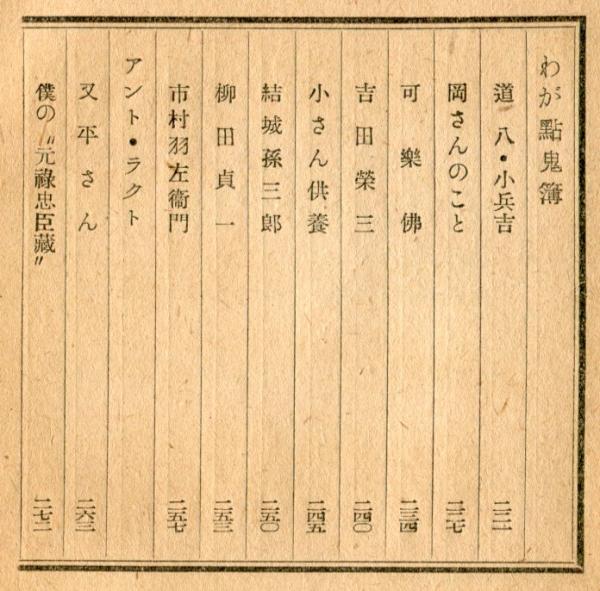 わが點鬼簿
道八・小兵吉 二二一
岡さんのこと 二二七
可樂佛 二三四
吉田榮三 二四〇
小さん供養 二四五
結城孫三郎 二五〇
柳田貞一 二五三
市村羽左衞門 二五七
アント・ラクト
又平さん 二六三
僕の〝元祿忠臣藏〟 二七二